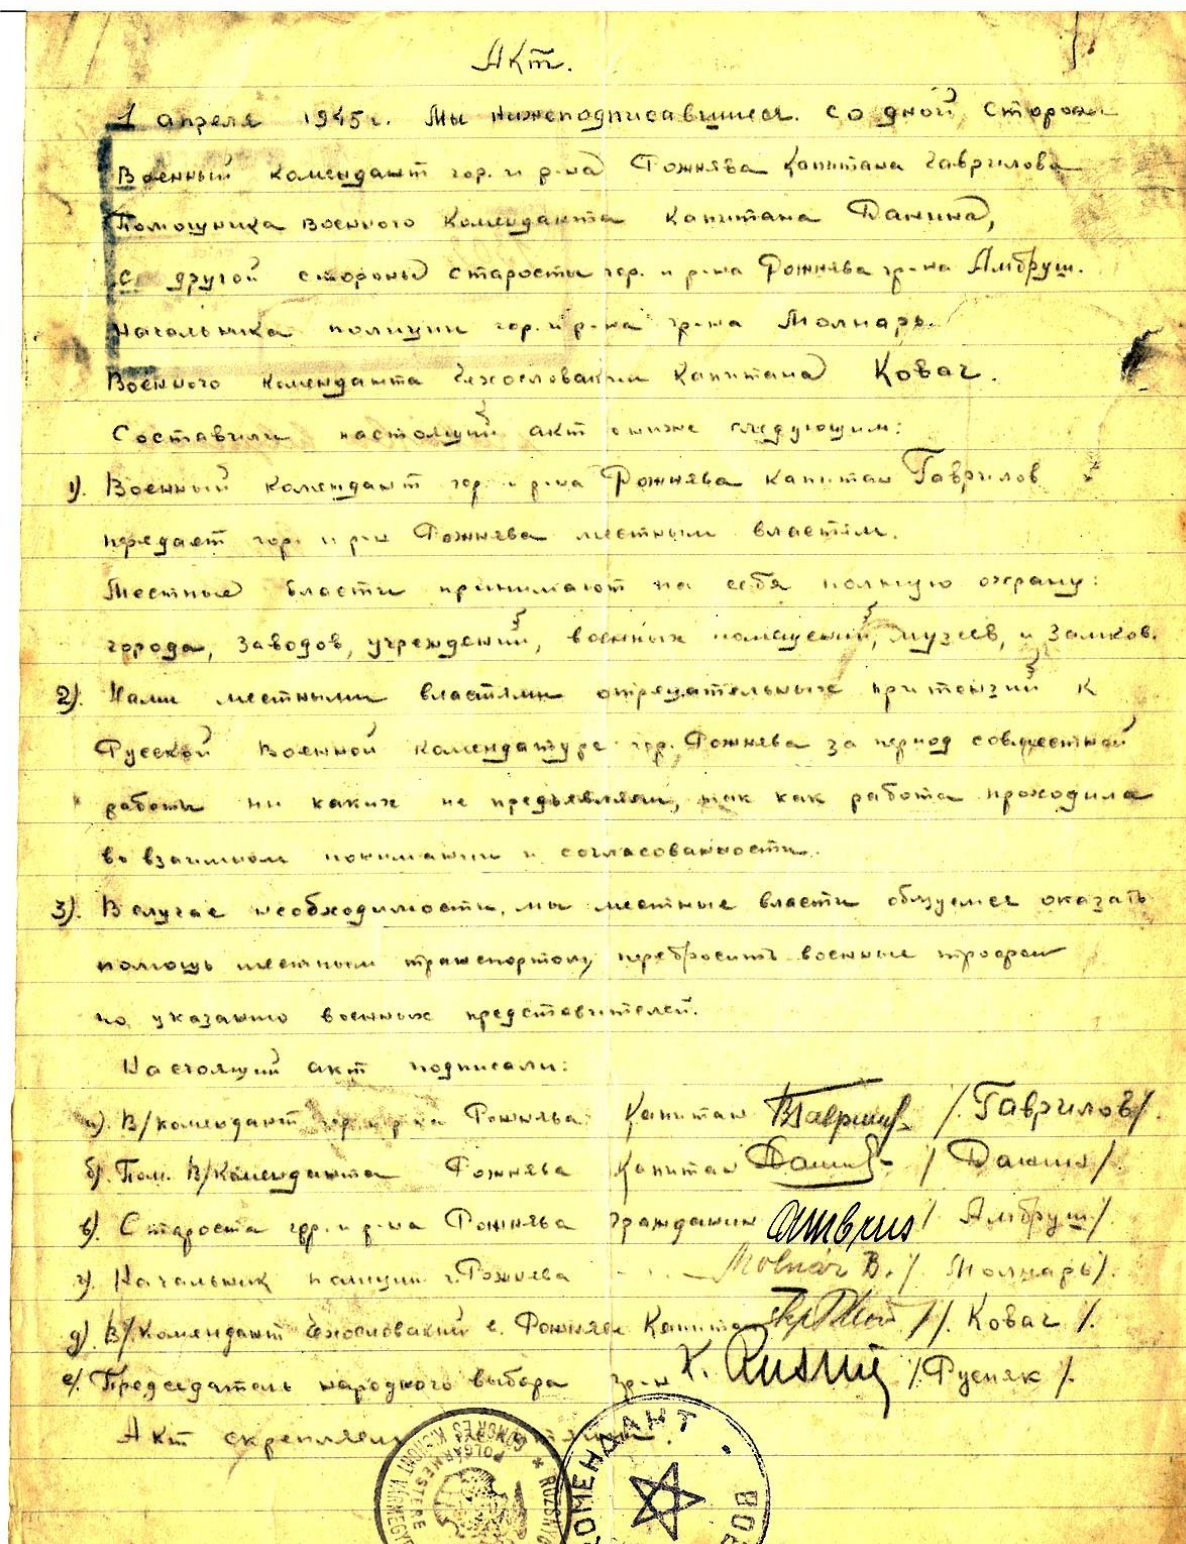 Акт.
1 апреля 1945г. Мы нижеподписавшиеся. со дной стороны
Военный комендант гор. и р-на Рожнява капитана Гаврилова
Помощника военного коменданта капитана Данина,
с другой стороны старосты гор. и р-на Рожнява гр-на Амбруш.
Начальника полиции гор. и р-на гр-на Молнарь.
Военного коменданта Чехословакии капитана Ковач.
Составили настоящий акт о ниже следующим:
1). Военный комендант гор. и р-на Рожнява капитан Гаврилов
передает гор. и р-н Рожнява местным властям.
Местные власти принимают на себя полную охрану:
города, заводов, учреждений, военных помещений, музеев, и замков.
2). Нами местными властями отрецательных притензий к
Русской военной комендатуре гор. Рожнява за период совместной
работы ни каких не предъявляем, так как работа проходила
во взаимном понимании и согласованности.
3). В случае необходимости, мы местные власти обязуемся оказать
помощь местным транспортом, перебросить военные трофеи
по указанию военных представителей.
Настоящий акт подписали:
а). В/комендант гор. и р-на Рожнява капитан /. Гаврилов/.
б). Пом. В/Коменданта Рожнява капитан / Данин/.
в). Староста гор. и р-на Рожнява гражданин Ambrus / Амбруш/.
г). Начальник полиции г. Рожнява Molnár B. / Молнарь/.
д). В/Комендант Чехословакии г. Рожнява Капитан /. Ковач /.
е/. Председатель народного выбора гр-н Rusnák / Русняк /.
Акт скрепляем
КОМЕНДАНТ
GÖMÖR ÉS KISHONT VÁRMEGYE
POLGÁRMESTERE